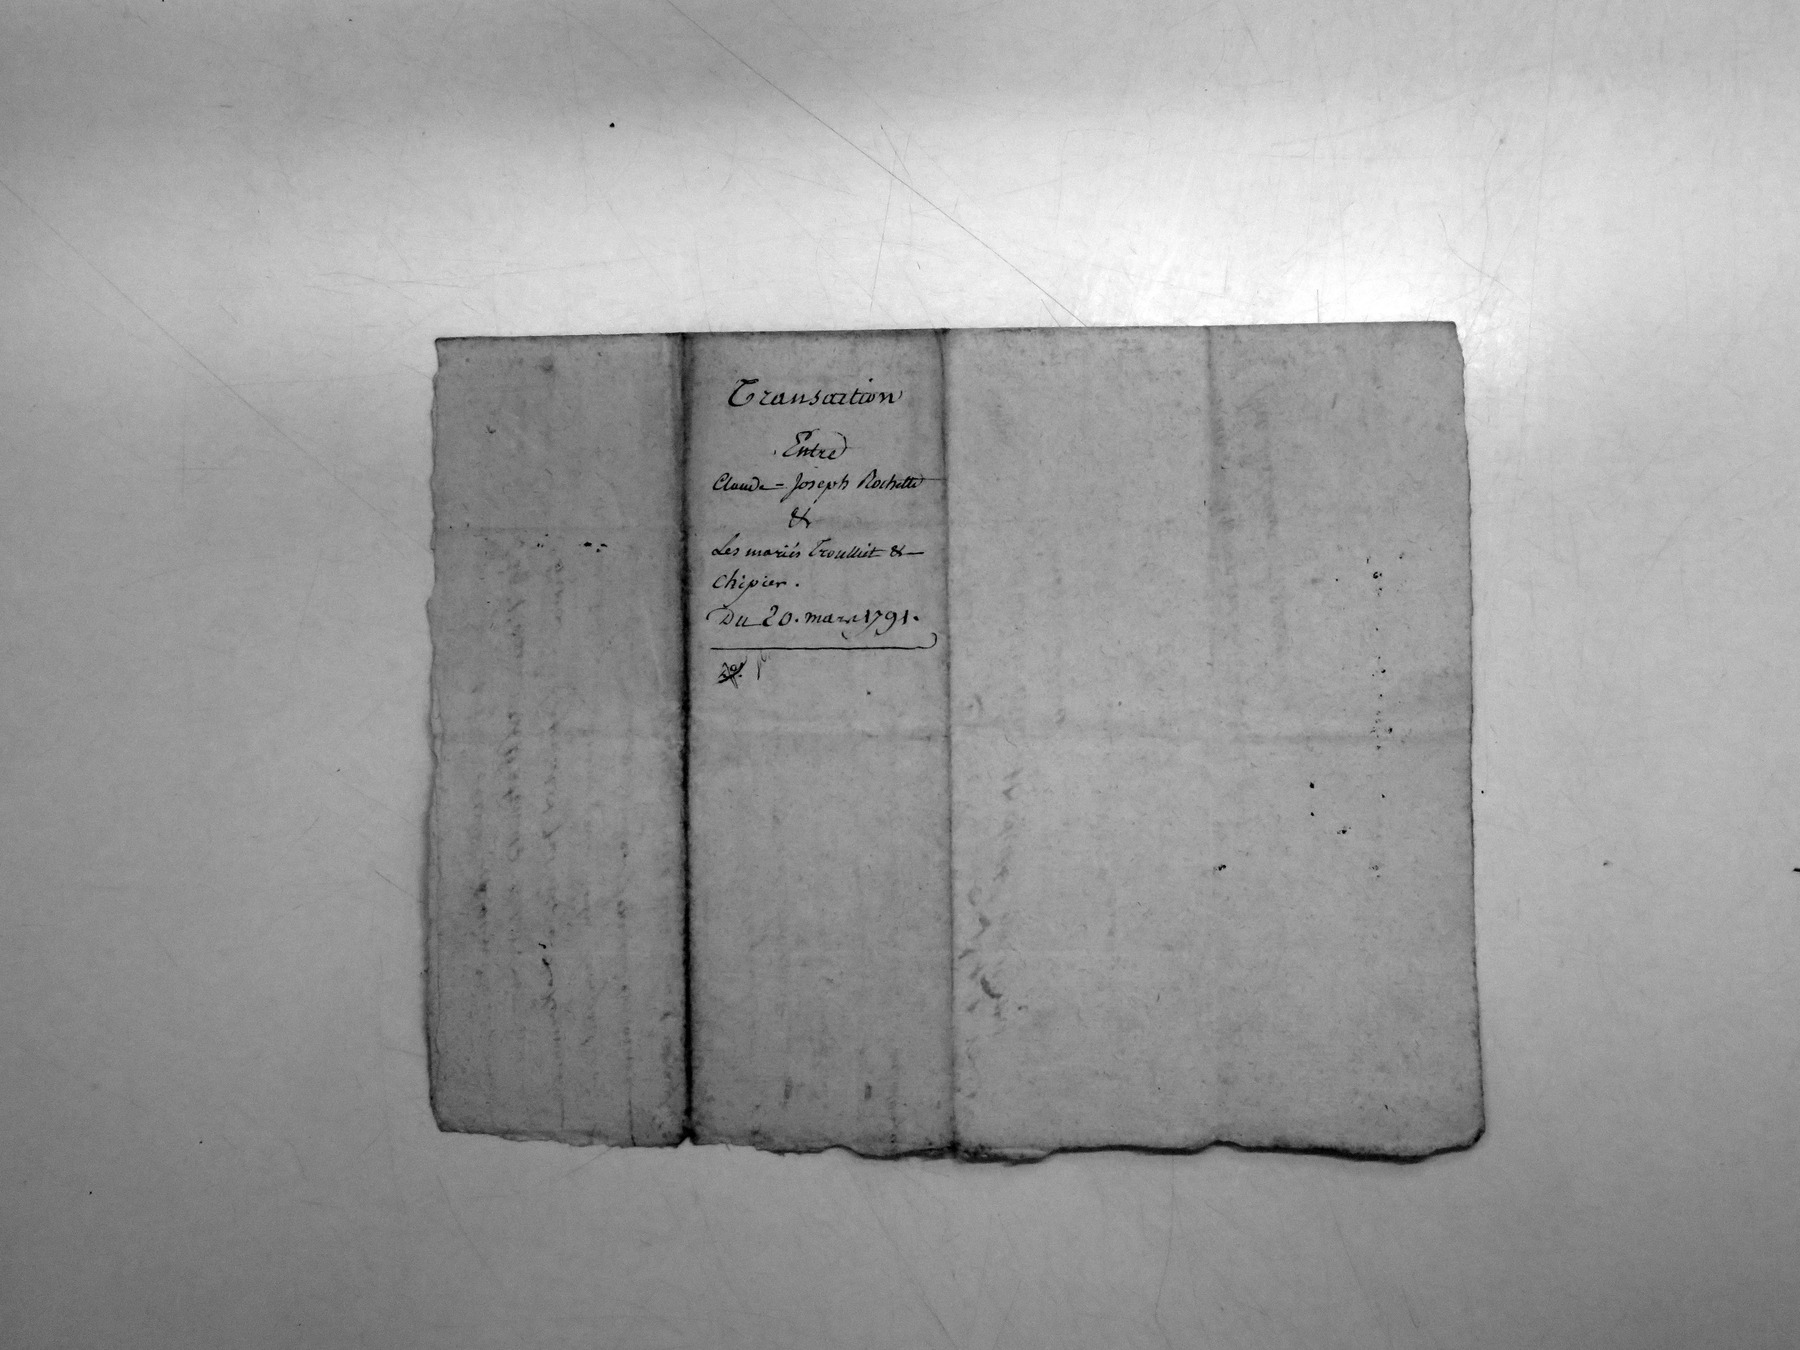 Transaction
Entre
Claude-Joseph Rochette
&
Les mariés Troulliet &
Chipier.
Du 20. mars 1791.